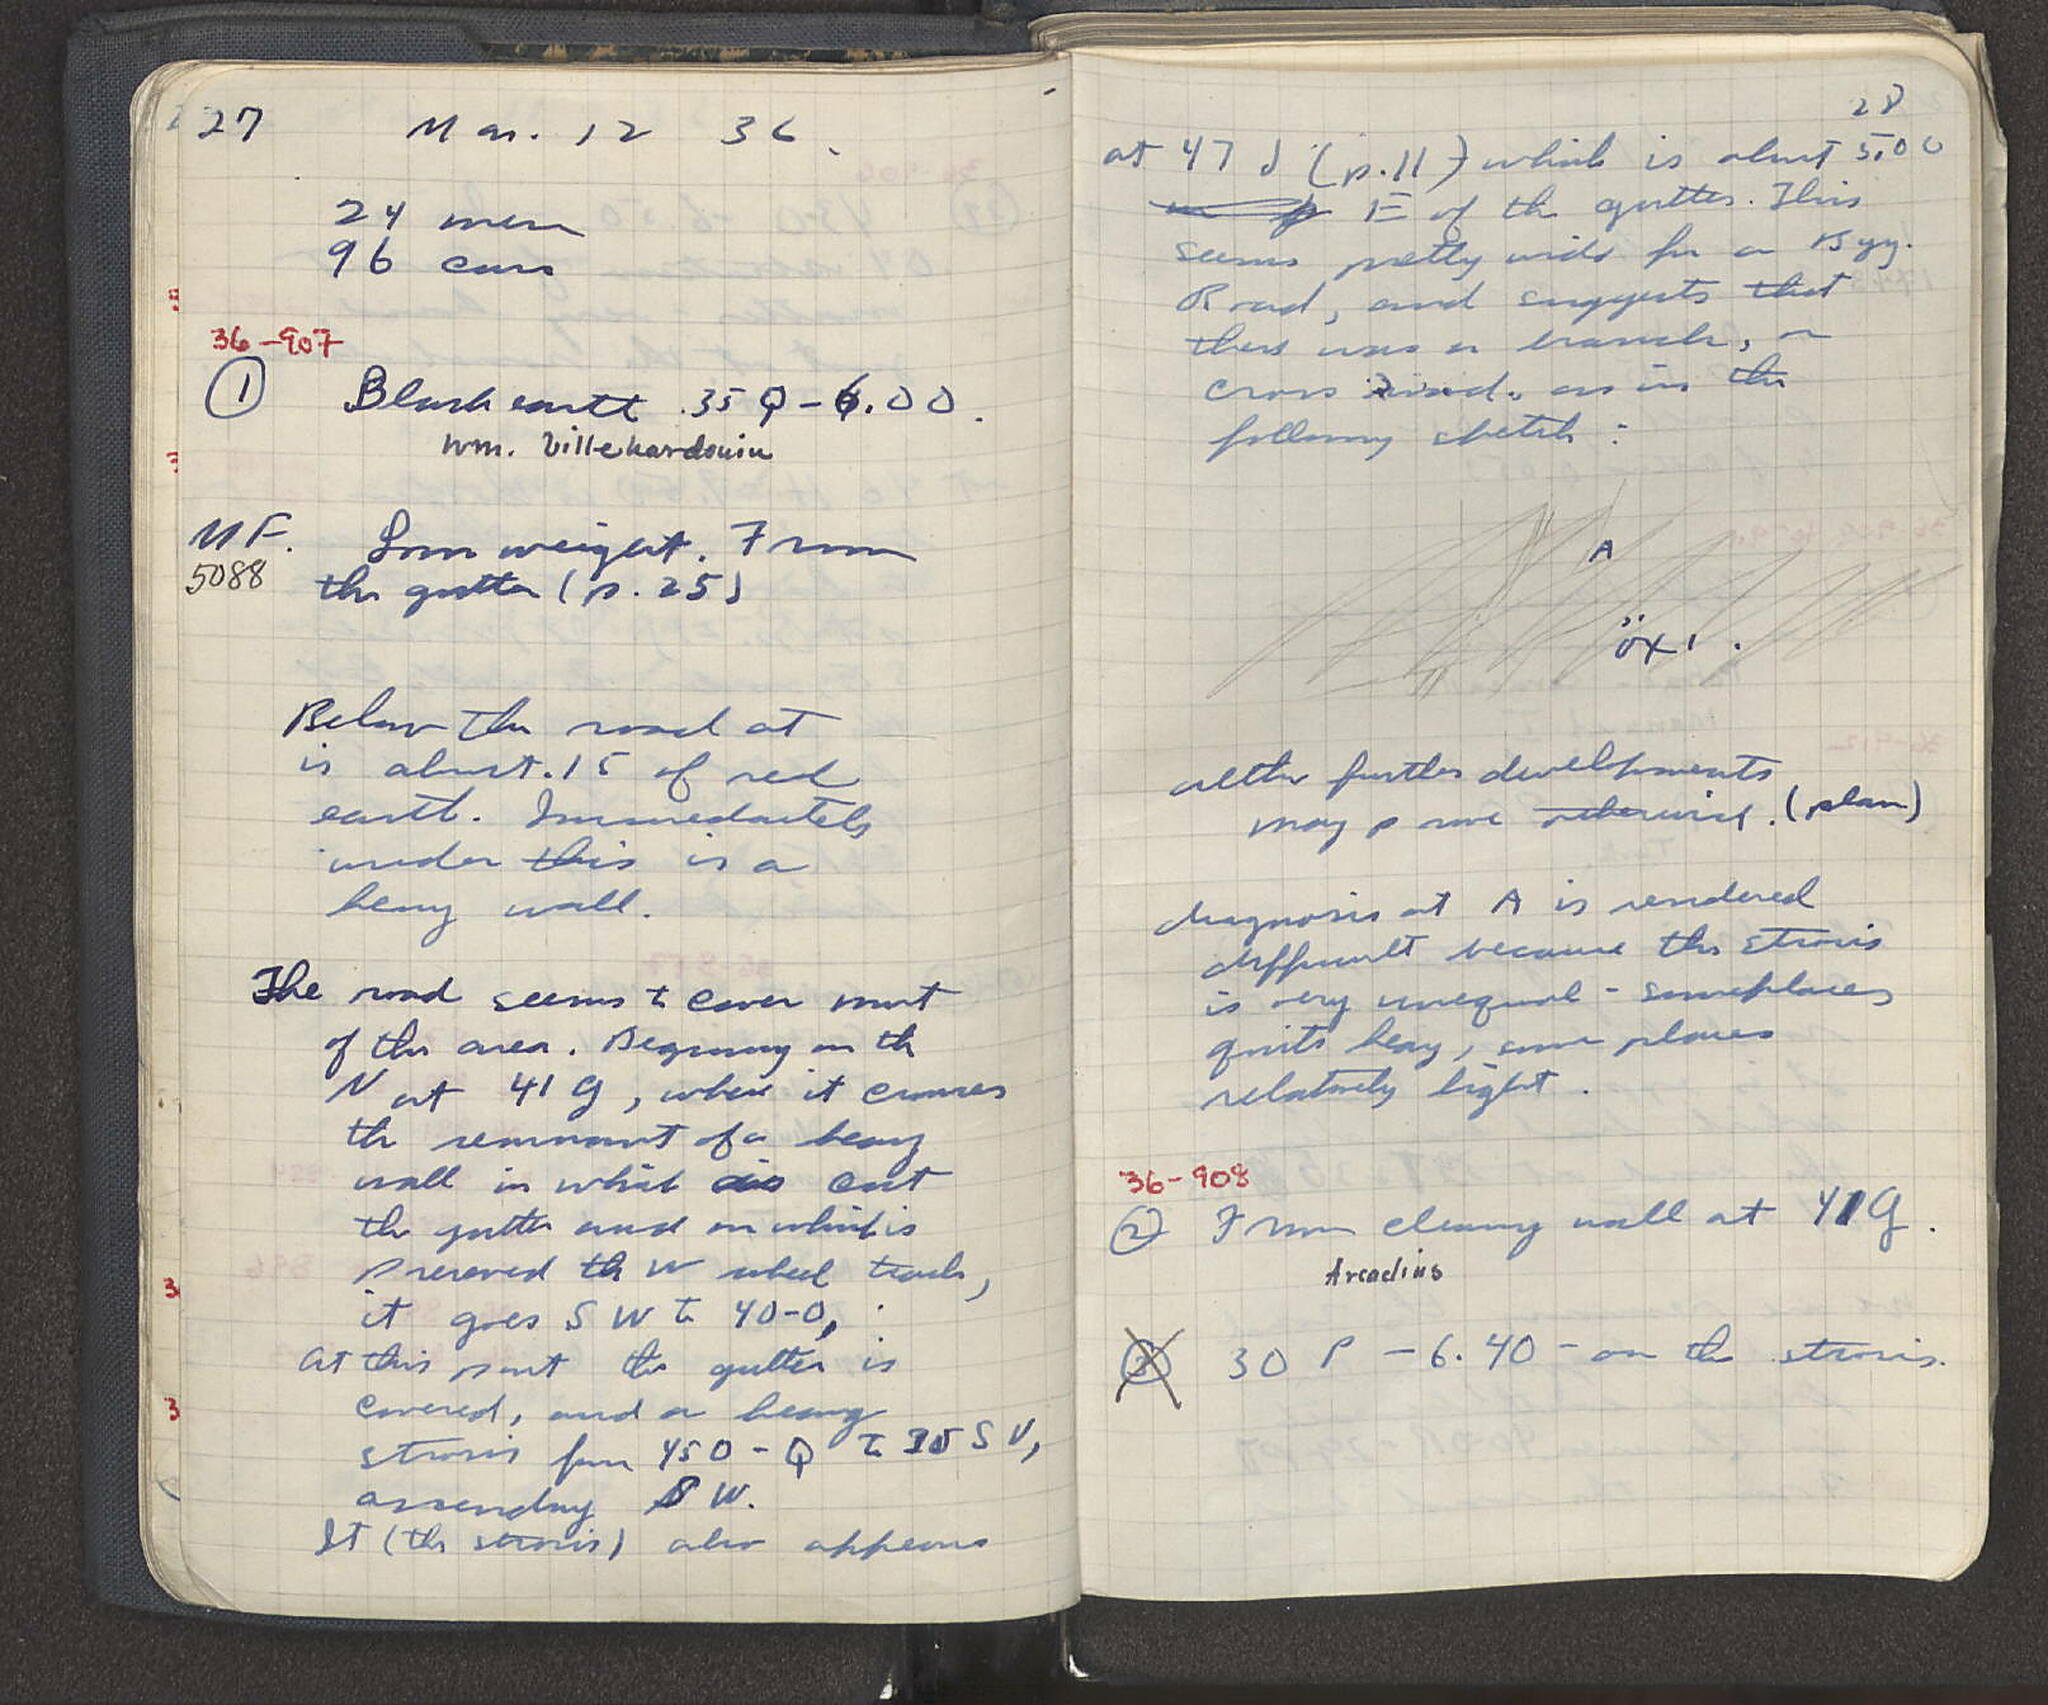 27 Mar. 12 36.
24 men
96 cars
36-907
① Black earth .35 Q - 6.00.
Wm. Villehardouin
MF. Loom weight. From
5088 the gutter (p. 25)
Below the road at
is about .15 of red
earth. Immediately
under this is a
heavy wall.
The road seems to cover most
of the area. Beginning on the
N at 41 G, where it crosses
the remnant of a heavy
wall in which is cut
the gutter and on which is
preserved the W wheel track,
it goes SW to 40-O,
At this point the gutter is
covered, and a heavy
strosis from 45 O - Q to 35 S V,
ascending SW.
It (the strosis) also appears
28
at 47 J (p. 11) which is about 5.00
E of the gutter. This
seems pretty wide for a Byz.
Road, and suggests that
there was a branch, or
cross road, as in the
following sketch:
A
ὄχι.
altho further developments
may prove otherwise. (plan)
diagnosis at A is rendered
difficult because the strosis
is very unequal - some places
quite heavy, some places
relatively light.
36-908
② From cleaning wall at 41 G.
Arcadius
③ 30 P - 6.40 - on the strosis.